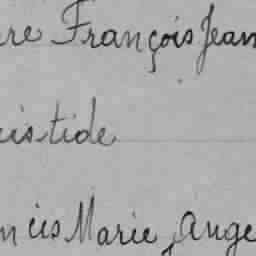 re François Jean
istide
ncis Marie Ange